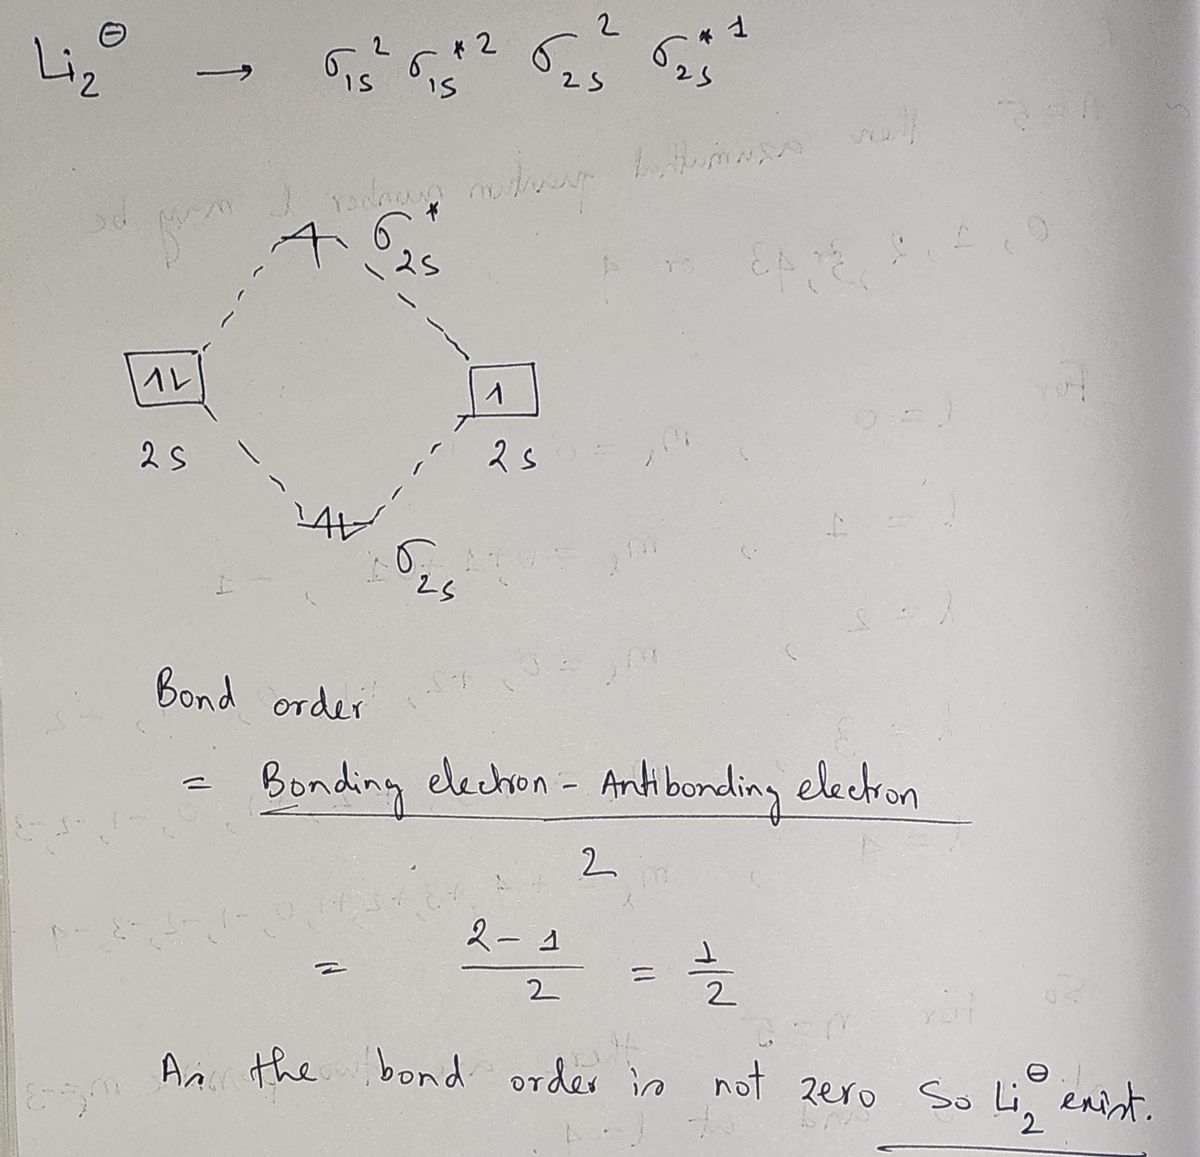 Li₂⊖ → σ1s² σ1s*² σ2s² σ2s*¹
1 σ*2s
1L 1
2s 2s
1L
σ2s
Bond order
= Bonding electron - Antibonding electron
2
= 2-1 = 1
2 2
As the bond order is not zero So Li₂⊖ exist.